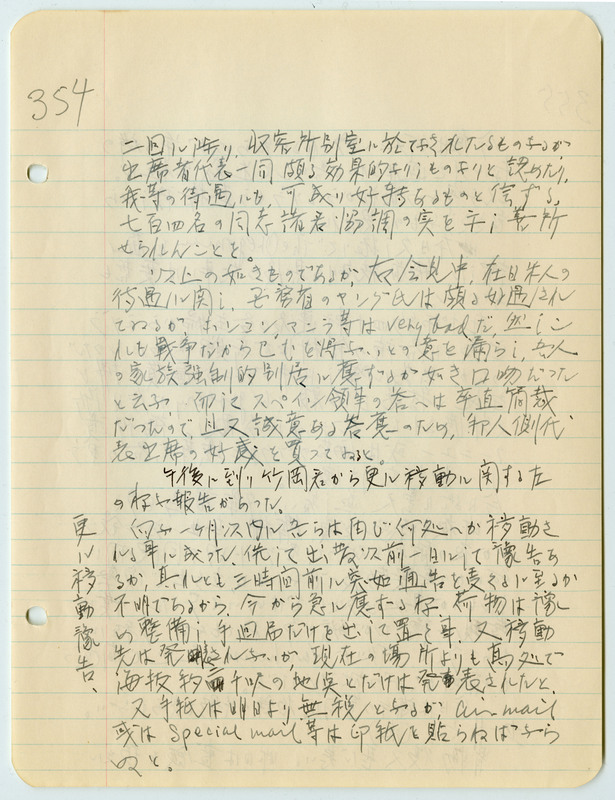 354
二回ル渉リ、収容所別室ル於てなされたるものなるが
出席者代表一同頗る効果的なりしものなりと認めたり、
我等の待遇にも、可成り好転あるものと信ずる、
七百四名の同志諸君、協調の実を
せられんことを。
リストの如きものであるが、右会見中、在日米人の
待遇ル関し、ヤング氏は頗る好遇されて
てゐるが、ホンコン、マニラ等は very bad だ、然しこ
れも戦争だから已むを得ないとの意を漏らし、
の家族強制的別居ル應ずるが如き口吻だった
と云ふ、而してスペイン領事の答へは率直簡裁
だったので、且又誠意ある答應のため、邦人側代
表出席の好感を買ってゐると。
午後ル到リ竹岡君から更ル移動ル関する左
の様な報告があった。
何れ一ヶ月以内ル吾らは再び何処へか移動さ
れる事ル成った、併して出発以前一日ルして豫告あ
るか、其れとも三時間前ル突如通告を受くるル至るか
不明であるから、今から急ル應ずる様、荷物は豫
め整備し、手廻品だけを出して置く事、又移動
先は発表されないが、現在の場所よりも高処で
海抜約 千呎の地点とだけは発表されたと、
又手紙は明日より無税となるが、air mail
或は special mail 等は印紙を貼らねばなら
ぬと。
更ル移動豫告、